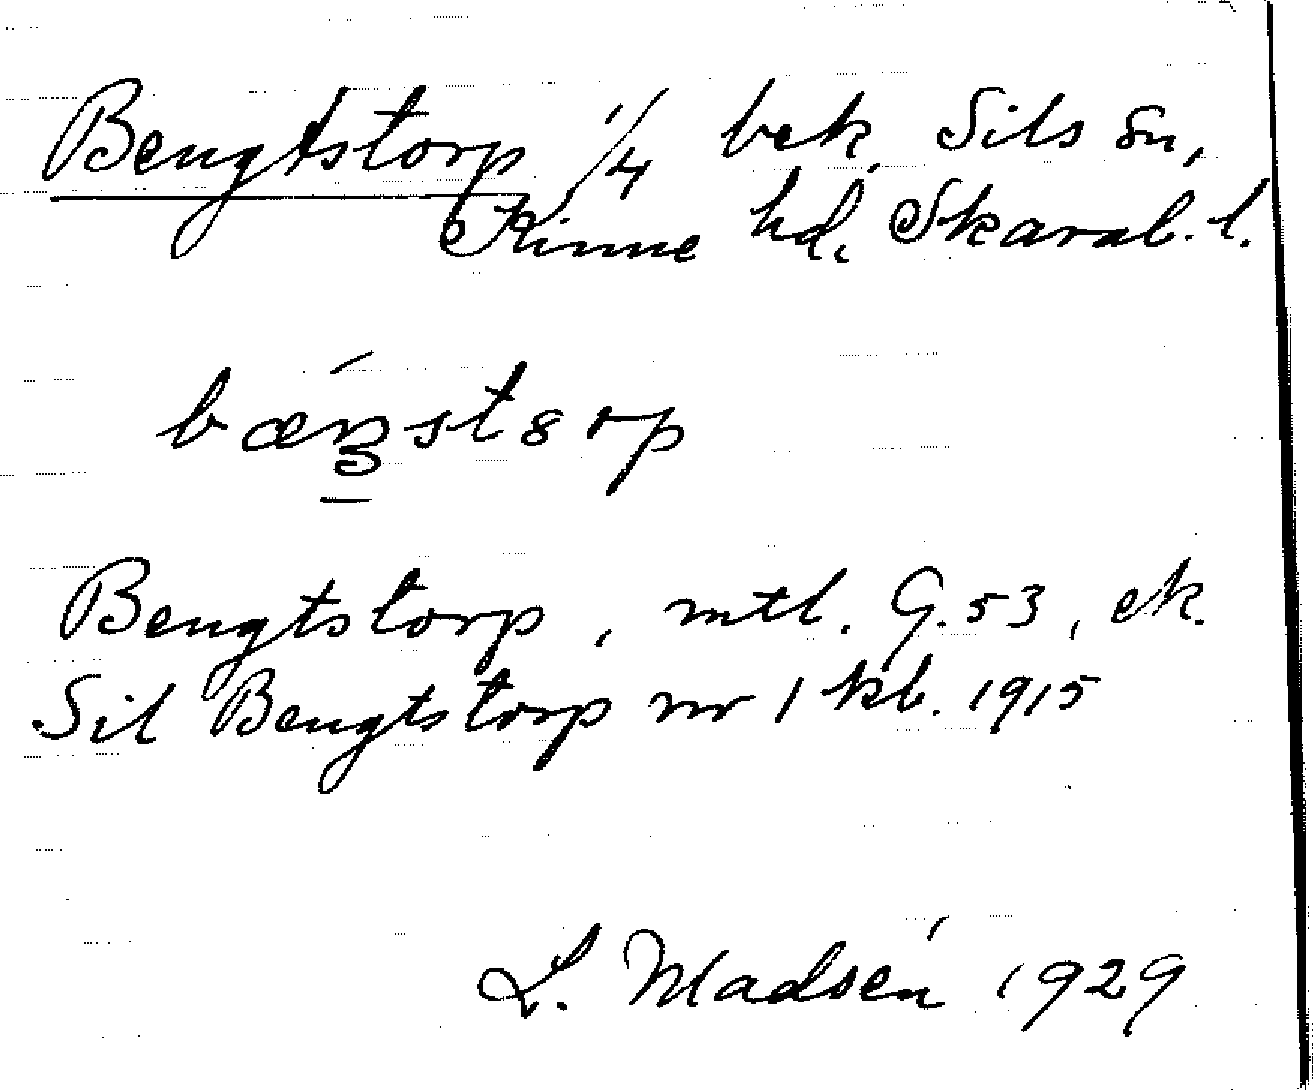 Bengtstorp 1/4 bek. Sils sn,
Kinne hd, Skarab. l.
Bengtstorp, mtl. G. 53, ek.
Sil Bengtstorp nr 1 kb. 1915
L. Madsén 1929